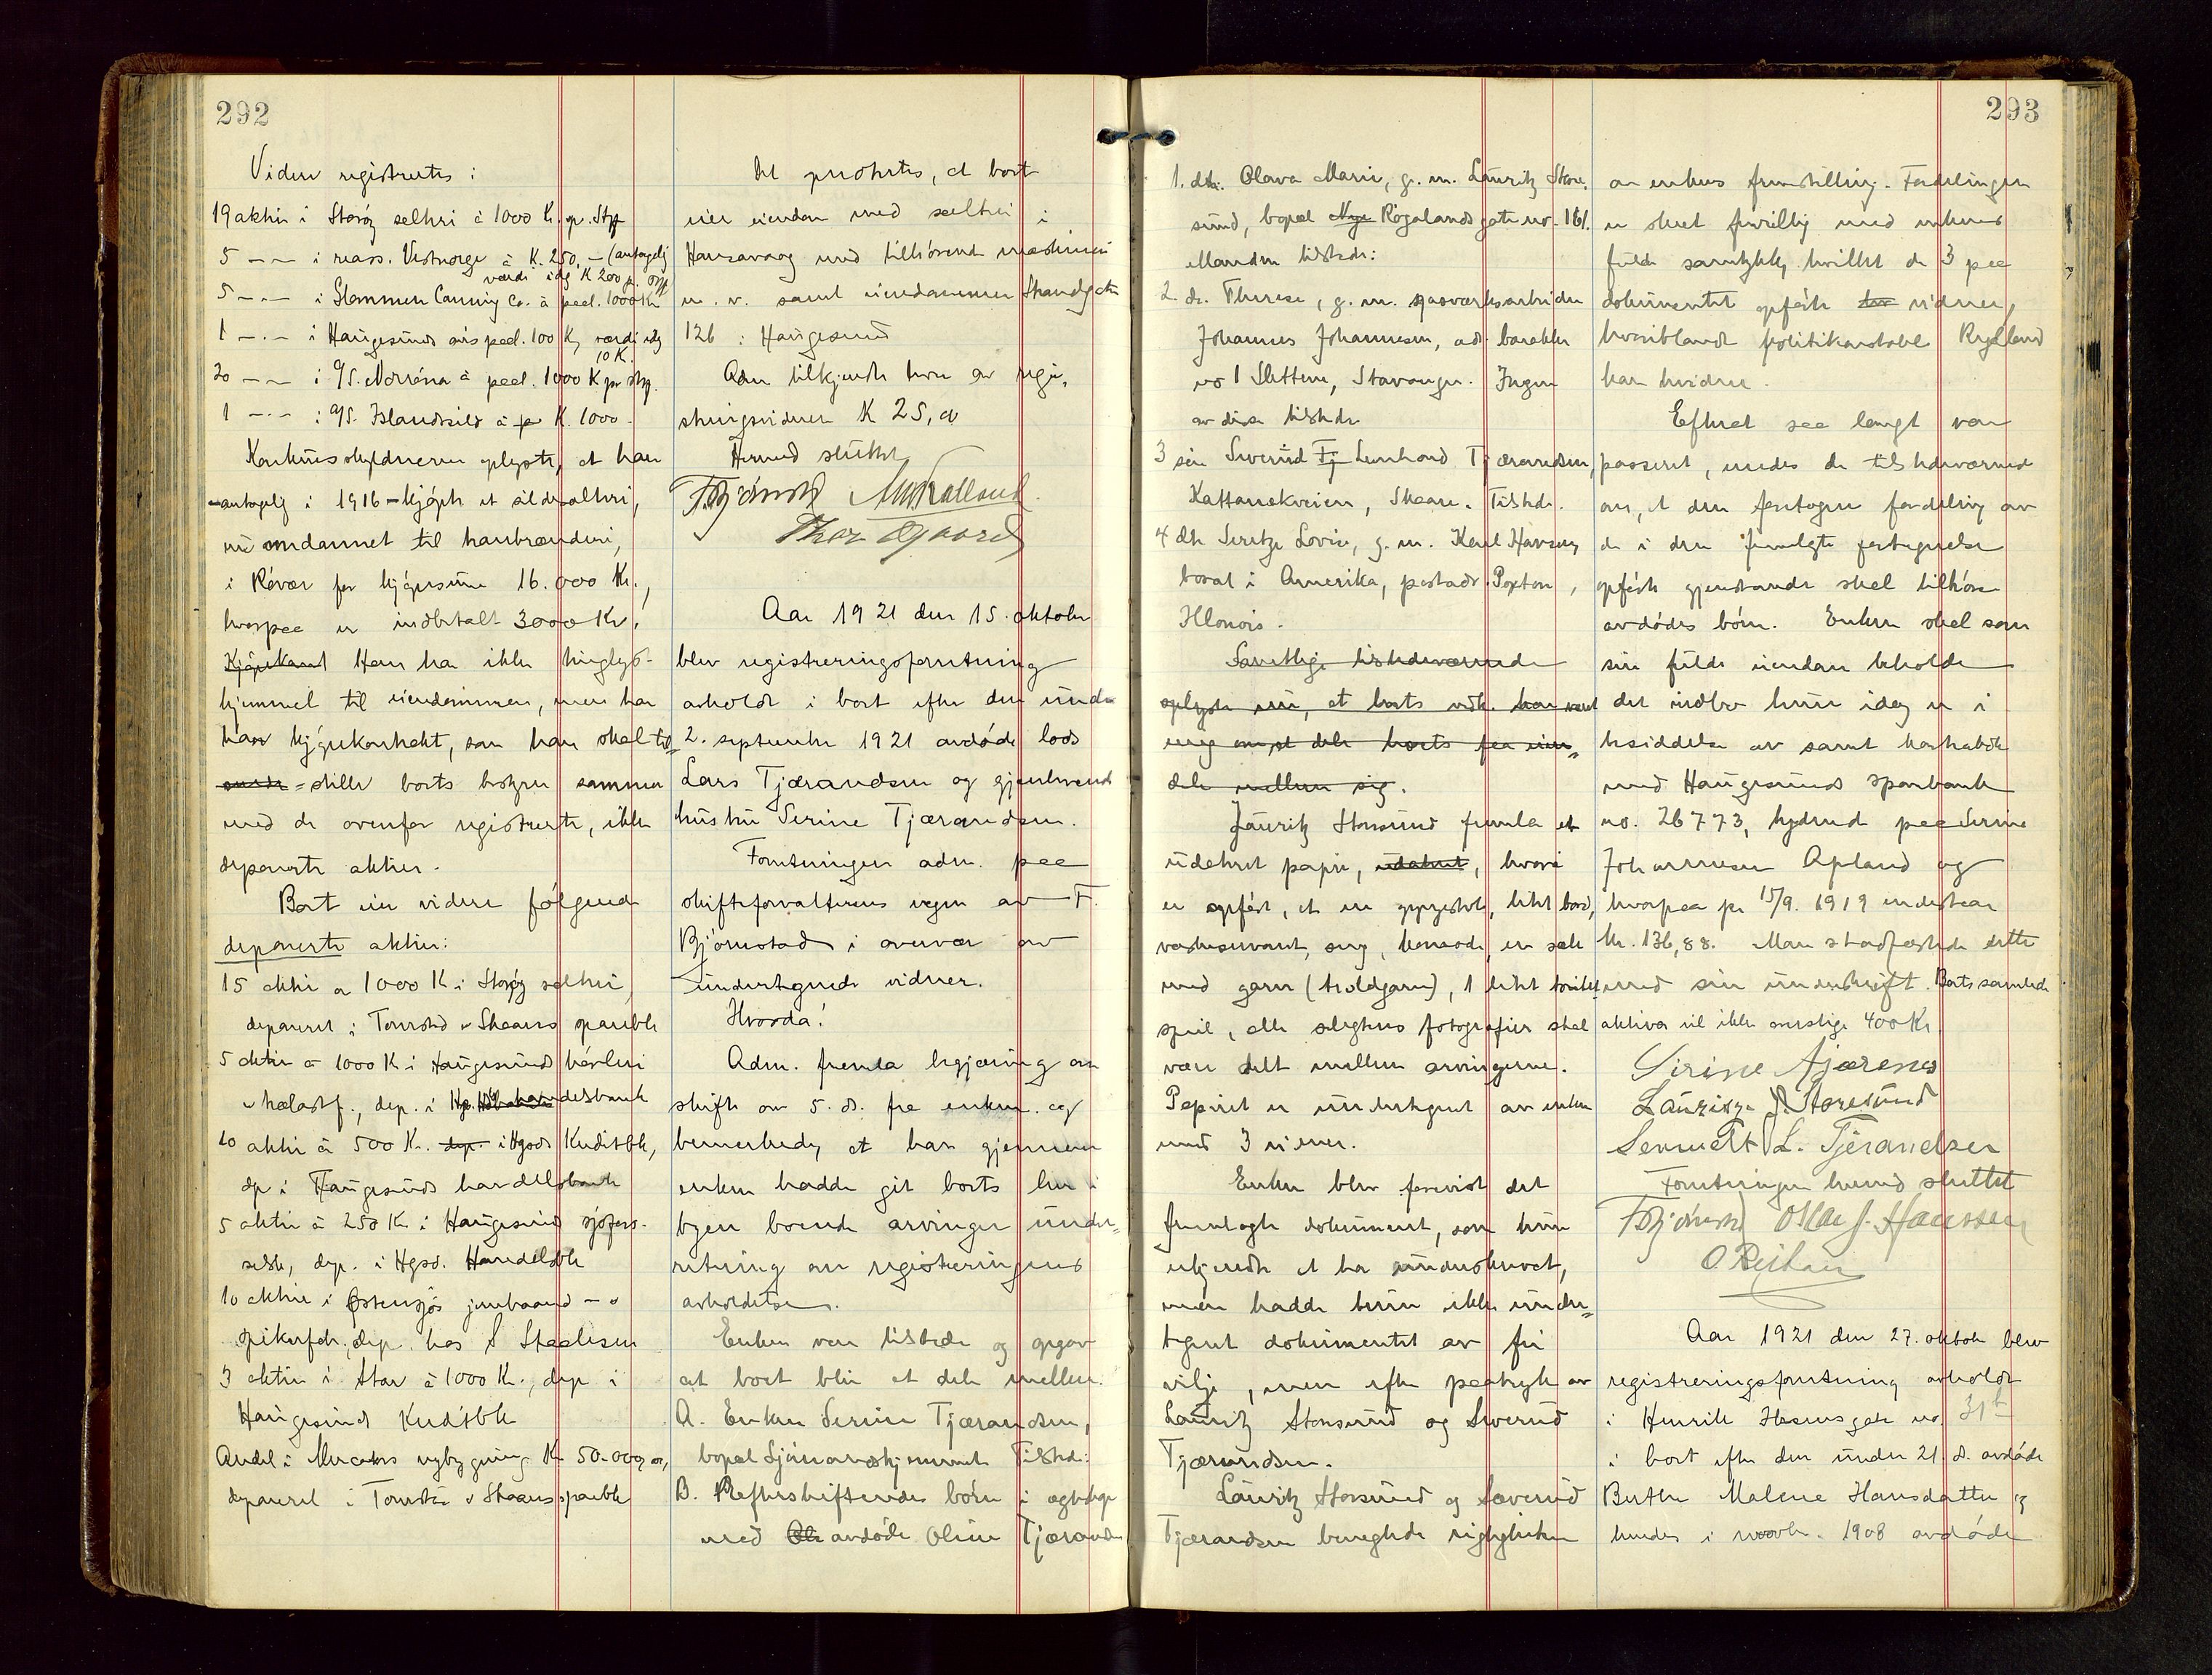 292
Videre registrertes:
19 aktier i Storøy saltri à 1000 K. pr. Stp
5 -"- i mass. Vestnorge à K. 250,- (antagelig
verdi idag K 200 pr. Stp
5 -"- i Stammen Canning Co. à paal. 1000 Kr
1 -"- i Haugesunds avis paal. 100 K, værdi idag
10 K.
20 -"- i A/S. Norrøna à paal. 1000 K pr stp.
1 -"- i A/S. Islandsild à K. 1000.
Konkursskyldneren oplyste, at han
antagelig i 1916 - kjøpte et sildesalteri,
nu omdannet til tranbrænderi,
i Røvær for kjøpesum 16.000 Kr.,
hvorpaa er indbetalt 3000 Kr.
Kjøpekont Han har ikke tinglyst
hjemmel til eiendommen, men har
kjøpekontrakt, som han skal til-
stille boets bestyrer sammen
med de ovenfor registrerte, ikke
deponerte aktier.
Boet eier videre følgende
deponerte aktier:
15 aktier a 1000 K i Storøy saltri,
deponert i Torvestad & Skaare sparebk
5 aktier à 1000 K i Haugesunds
dep. i handelsbank
10 aktier à 500 K. dep. i Hgsds Kreditbk,
dep i Haugesunds handelsbank
5 aktier à 250 Kr i Haugesund sjøfors.
selsk, dep. i Hgsd. Handelsbk
10 aktier i Østensjøs jernbaand - o
spikerfabr., dep. hos S Staalesen
3 aktier i Star à 1000 Kr., dep i
Haugesund Kreditbk
Andel i Mercators nybygning K 50.000,00,
deponert i Torvestad & Skaare sparebk
Det protokoleres, at boet
eier eiendom med salteri i
Haraavaag med tilhørende maskineri
m. v. samt eiendommen Strandgaten
126 i Haugesund
Adm tilkjendte hver av regi-
streringsvidnerne K 25,00
Hermed sluttet
F. Bjørnstad
Thor Ogaard
Aar 1921 den 15. oktober
blev registreringsforretning
avholdt i boet efter den under
2. september 1921 avdøde lods
Lars Tjærandsen og gjenlevende
hustru Serine Tjærandsen.
Forretningen adm. paa
skifteforvalterens vegne av F.
Bjørnstad i overvær av
undertegnede vidner.
Hvorda:
Adm. fremla begjæring om
skifte av 5. ds. fra enken og
bemerkede, at han gjennem
enken hadde git boets her i
byen boende arvinger under-
retning om registreringens
avholdelse.
Enken var tilstede og opgav
at boet blir at dele mellem
A. Enken Serine Tjærandsen,
bopæl Sjømannshjemmet Tilstede:
B. Efterskiftendes børn i egteskap
med avdøde Oline Tjærandsen
293
1. dtr. Olava Marie, g. m. Lauritz Store-
sund, bopæl Nye Rogalands gate no. 161.
Manden tilstede:
2. dr. Therese, g. m. gasværksarbeider
Johannes Johannesen, adr. barakken
no 1 Sletten, Stavanger. Ingen
av disse tilstede
3 søn Sverud Tj Lenhard Tjærandsen,
Kattanakveien, Skaare. Tilstede.
4 dtr Seretje Lovise, g. m. Karl Hansen
bosat i Amerika, postadr. Poxton,
Illonois.
Samtlige tilstedeværende
oplyste nu, at boets
dele mellem sig.
Lauritz Storesund fremla et
udatert papir, udatert, hvori
er opført, at en gyngestol, litet bord,
vaskeservant, seng, komode, en sæk
med garn (troldgarn), 1 litet toilet-
speil, alle slegtens fotografier skal
være delt mellem arvingerne.
Papiret er undertegnet av enken
med 3 vidner.
Enken blev forevist det
fremlagte dokument, som hun
erkjendte at ha underskrevet,
men hadde hun ikke under-
tegnet dokumentet av fri
vilje, men efter paatryk av
Lauritz Storesund og Sverud
Tjærandsen.
Lauritz Storesund og Sverud
Tjærandsen benegtede rigtigheten
av enkens fremstilling. Fordelingen
er skeet frivillig med enkens
fulde samtykke, hvilket de 3 paa
dokumentet opførte vidner,
hvoriblandt politikonstabel Rylland
kan bevidne.
Efterat saa langt var
passeret, enedes de tilstedeværende
om, at den foretagne fordeling av
de i den fremlagte fortegnelse
opførte gjenstande skal tilhøre
avdødes børn. Enken skal som
sin fulde eiendom beholde
det indbo hun idag er i
besiddelse av samt kontrabok
med Haugesunds sparebank
no. 26773, lydende paa Serine
Johannesen Apland og
hvorpaa pr 15/9. 1919 indestaar
Kr. 136,88. Man stadfæstede dette
med sin underskrift. Boets samlede
aktiva vil ikke overstige 400 Kr
Sirine Tjærensen
Lauritz J. Storesund
L. Tjerandsen
Forretningen hermed sluttet
F Bjørnstad Oskar J. Hanssen
Aar 1921 den 27. oktober blev
registreringsforretning avholdt
i Henrik Ibsens gate no 31b
i boet efter den under 21. ds. avdøde
Berthe Malene Hansdatter og
hendes i novbr. 1908 avdøde